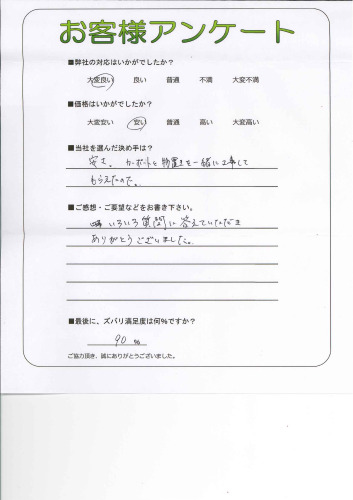 お客様アンケート
■弊社の対応はいかがでしたか?
大変良い 良い 普通 不満 大変不満
■価格はいかがでしたか?
大変安い 安い 普通 高い 大変高い
■当社を選んだ決め手は?
安さ。カーポートと物置きを一緒に工事して
もらえたので。
■ご感想・ご要望などをお書き下さい。
いろいろ質問に答えていただき
ありがとうございました。
■最後に、ズバリ満足度は何%ですか?
90 %
ご協力頂き、誠にありがとうございました。